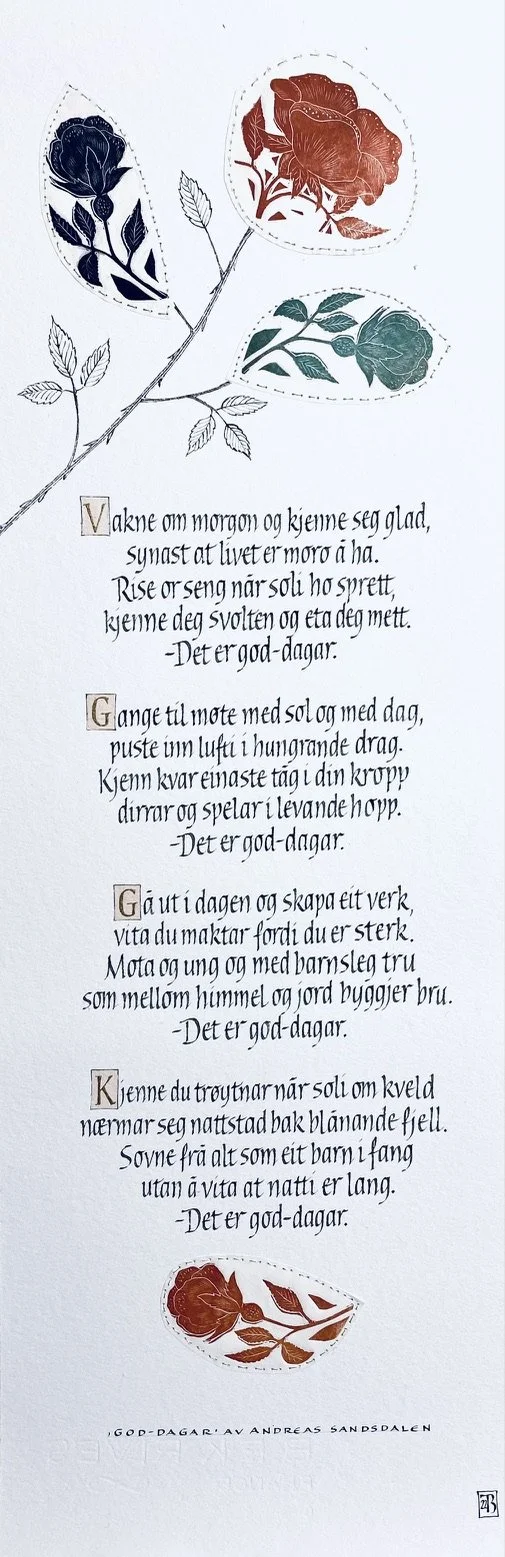 Vakne om morgon og kjenne seg glad,
synast at livet er moro å ha.
Rise or seng når soli ho sprett,
kjenne deg svolten og eta deg mett.
-Det er god-dagar.
Gange til møte med sol og med dag,
puste inn lufti i hungrande drag.
Kjenn kvar einaste tåg i din kropp
dirrar og spelar i levande hopp.
-Det er god-dagar.
Gå ut i dagen og skapa eit verk,
vita du maktar fordi du er sterk.
Mota og ung og med barnsleg tru
som mellom himmel og jord byggjer bru.
-Det er god-dagar.
Kjenne du trøytnar når soli om kveld
nærmar seg nattstad bak blånande fjell.
Sovne frå alt som eit barn i fang
utan å vita at natti er lang.
-Det er god-dagar.
'GOD-DAGAR' AV ANDREAS SANDSDALEN